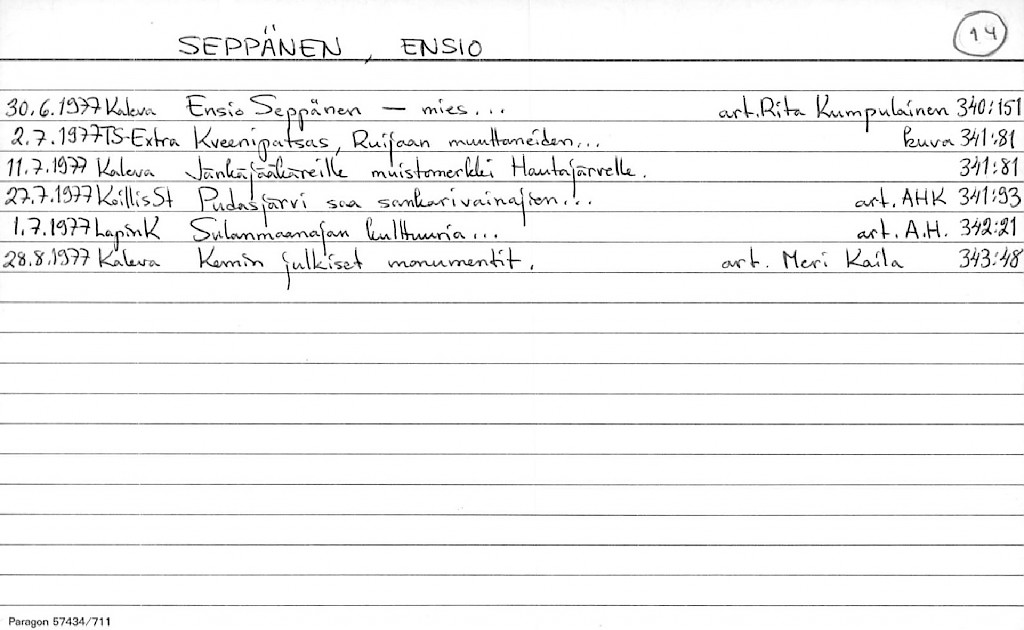 SEPPÄNEN, ENSIO 14
30.6.1977 Kaleva Ensio Seppänen — mies... art. Rita Kumpulainen 340:151
2.7.1977 TS-Extra Kveenipatsas, Ruijaan muuttaneiden... kuva 341:81
11.7.1977 Kaleva Jänkäjääkäreille muistomerkki Hautajärvelle. 341:81
27.7.1977 KoillisSt Pudasjärvi saa sankarivainajien... art. AHK 341:93
1.7.1977 LapinK Sulanmaanajan kulttuuria... art. A.H. 342:21
28.8.1977 Kaleva Kemin julkiset monumentit. art. Meri Kaila 343:48
Paragon 57434/711